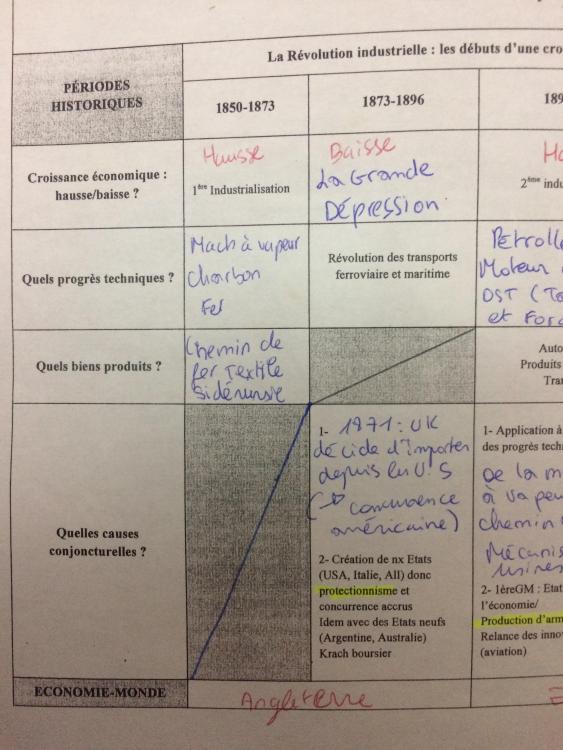 La Révolution industrielle : les débuts d'une cro
PÉRIODES
HISTORIQUES
1850-1873
1873-1896
189
Croissance économique :
hausse/baisse ?
Hausse
1ère Industrialisation
Baisse
La Grande
Dépression
Ha
2ème indu
Quels progrès techniques ?
Mach à vapeur
Charbon
Fer
Révolution des transports
ferroviaire et maritime
Pétrole
Moteur
OST (Ta
et Ford
Quels biens produits ?
Chemin de
fer Textile
Sidérurgie
Auto
Produits
Tran
Quelles causes
conjoncturelles ?
1- 1871 : UK
décide d'importer
depuis les U.S
(→ concurrence
américaine)
2- Création de nx Etats
(USA, Italie, All) donc
protectionnisme et
concurrence accrus
Idem avec des Etats neufs
(Argentine, Australie)
Krach boursier
1- Application à
des progrès tech
De la m
à vapeu
chemin
Mécanis
usines
2- 1èreGM : Etat
l'économie/
Production d'arm
Relance des inno
(aviation)
ECONOMIE-MONDE
Angleterre